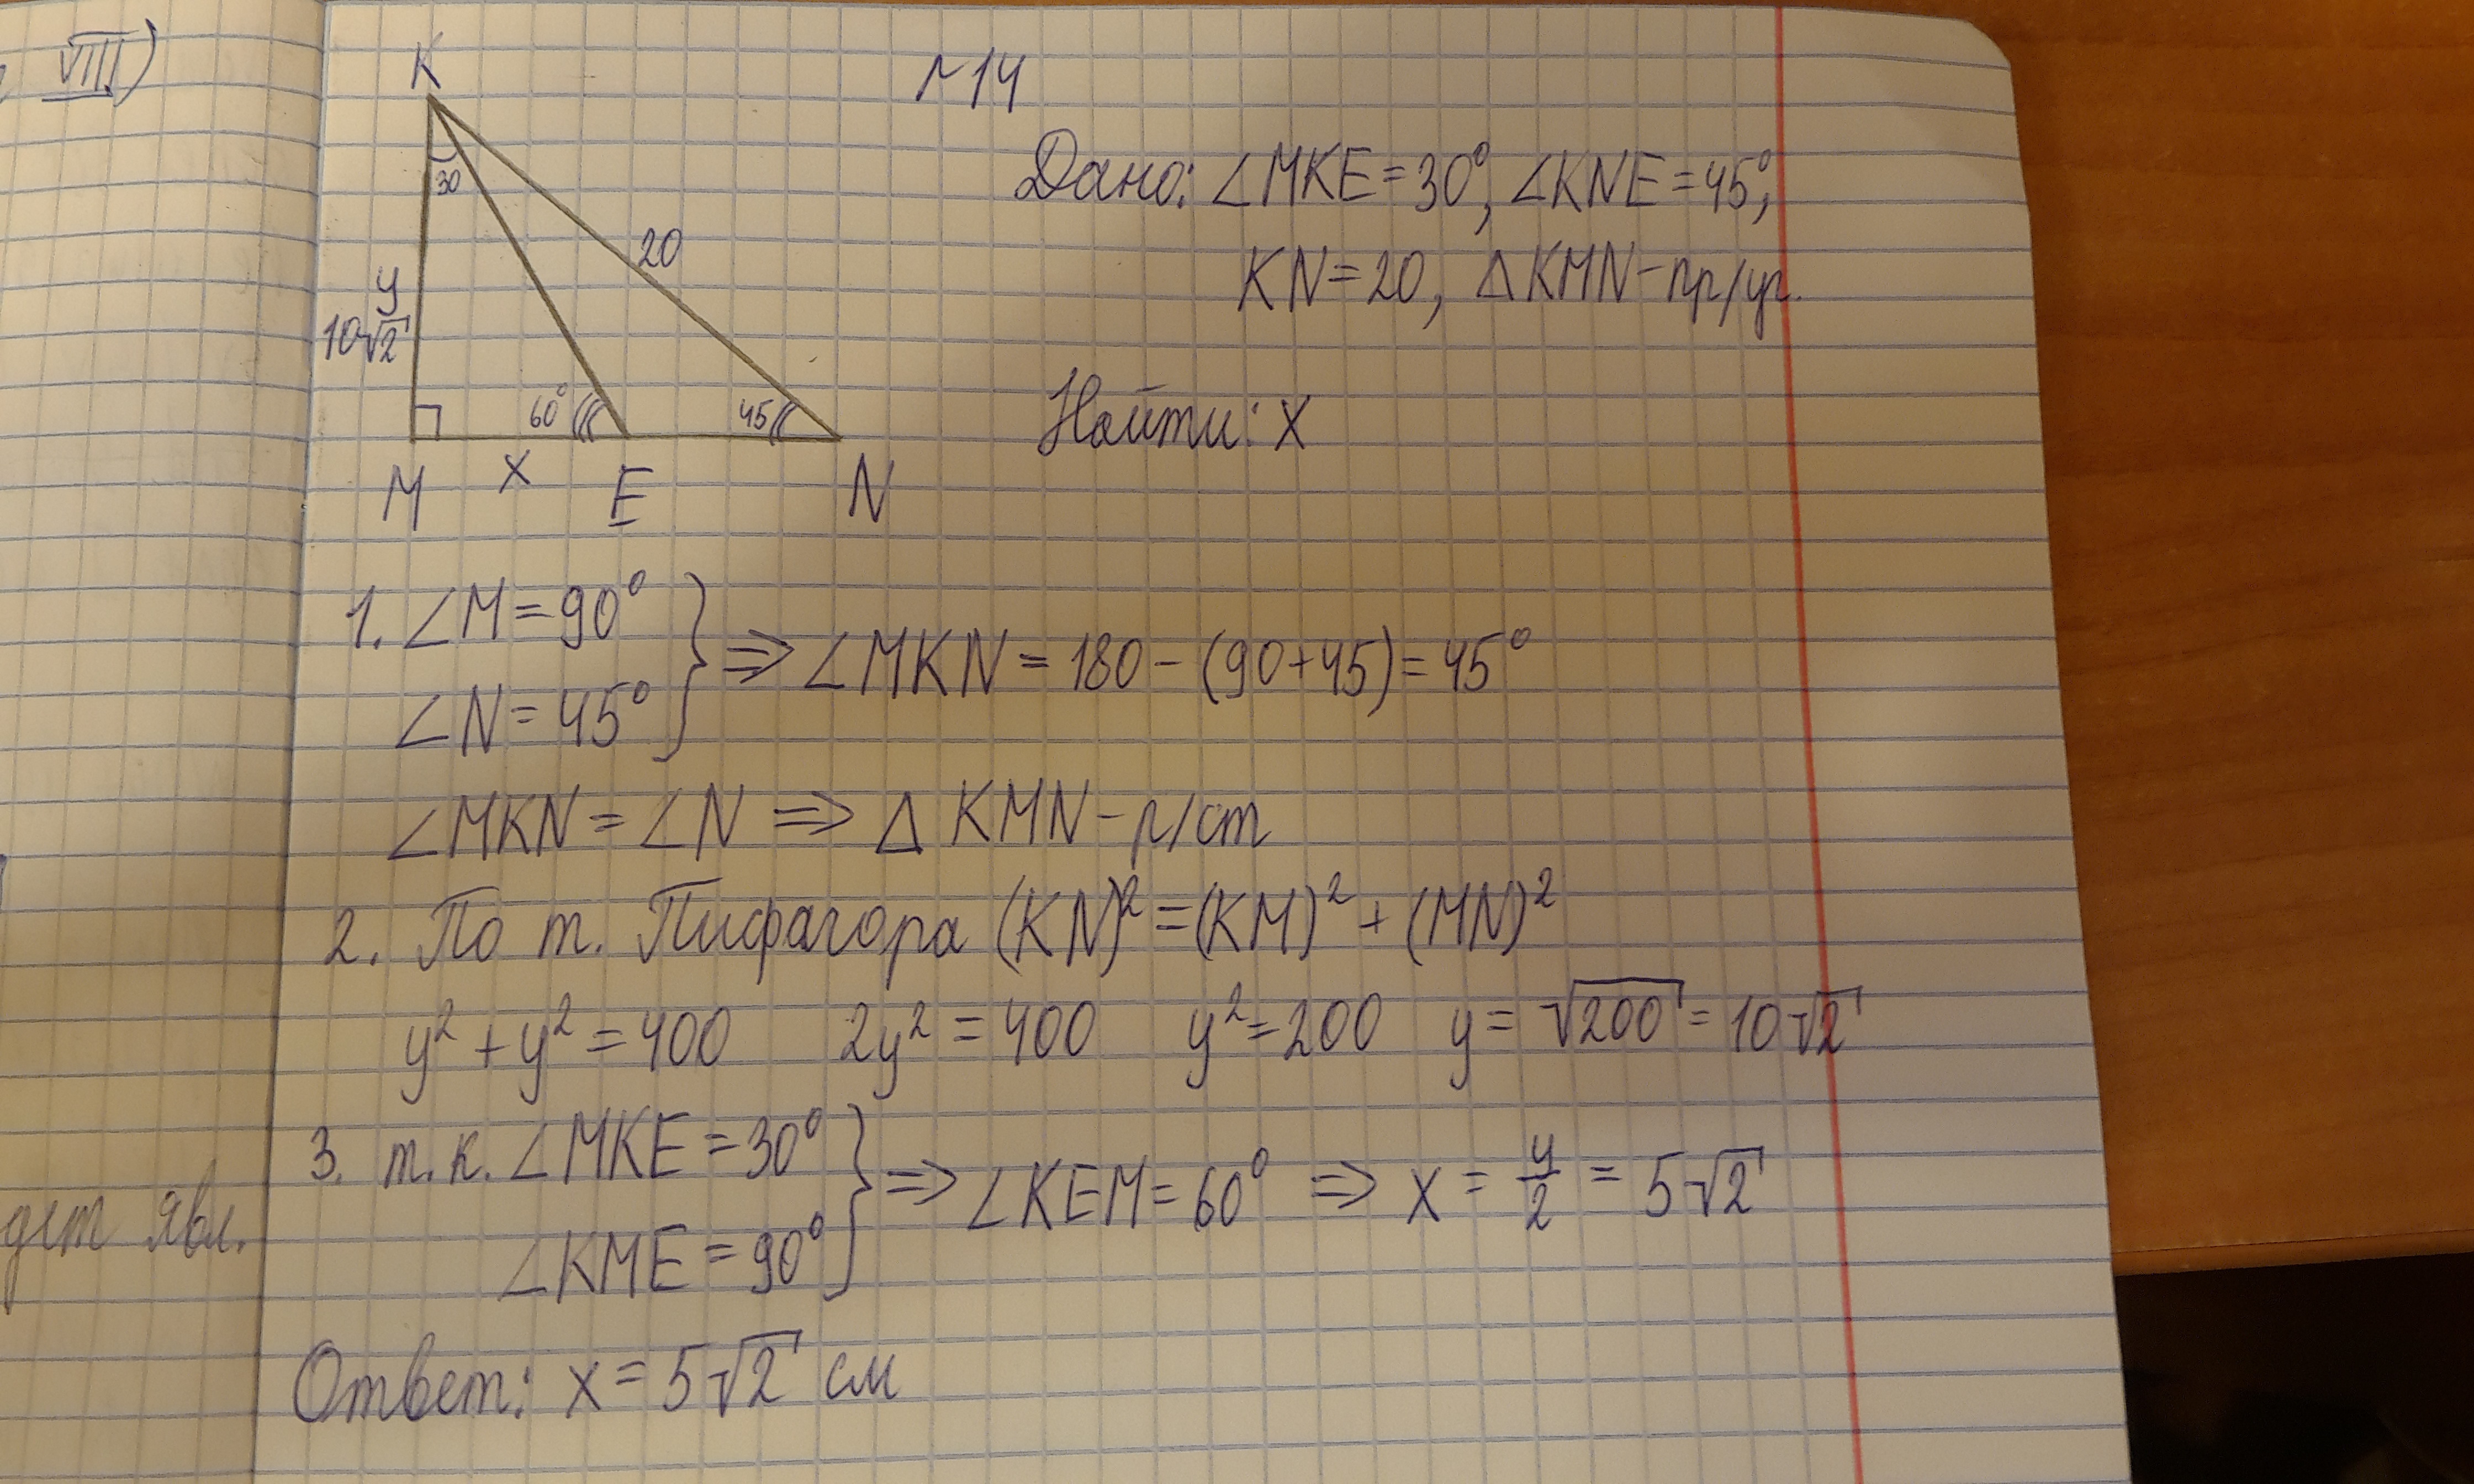 VIII)
N14
K
30
20
y
10√2
60°
45
M x E N
Дано: ∠MKE=30°, ∠KNE=45°,
KN=20, Δ KMN-пр/уг.
Найти: x
1. ∠M=90°
∠N=45°
⇒ ∠MKN = 180-(90+45)=45°
∠MKN = ∠N ⇒ Δ KMN-р/ст
2. По т. Пифагора (KN)²=(KM)²+(MN)²
y²+y²=400 2y²=400 y²=200 y=√200=10√2
3. т.к. ∠MKE=30°
∠KME=90°
⇒ ∠KEM=60° ⇒ x = y/2 = 5√2
явл.
Ответ: x=5√2 см